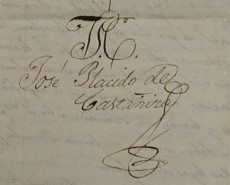 José Placido de
Castañira